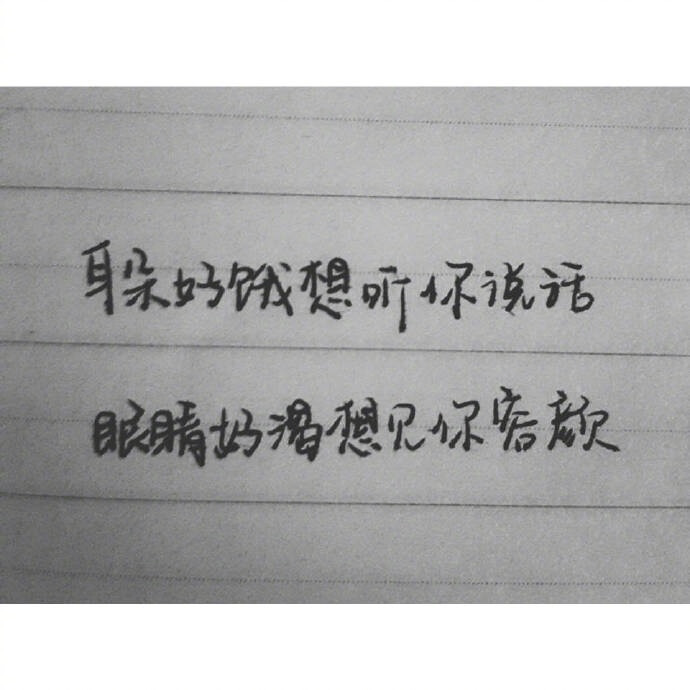 耳朵好饿想听你说话
眼睛好渴想见你容颜